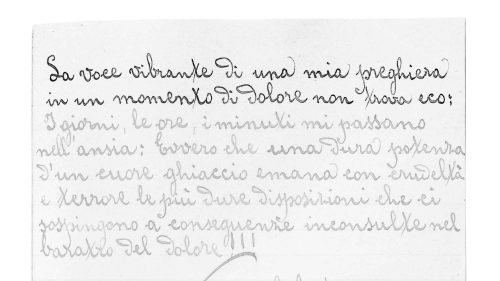 La voce vibrante di una mia preghiera
in un momento di dolore non trova eco;
I giorni, le ore, i minuti mi passano
nell'ansia: Evvero che una dura potenza
d'un cuore ghiaccio emana con crudeltà
e terrore le più dure disposizioni che ci
sospingono a conseguenze inconsulte nel
baratro del dolore!!!